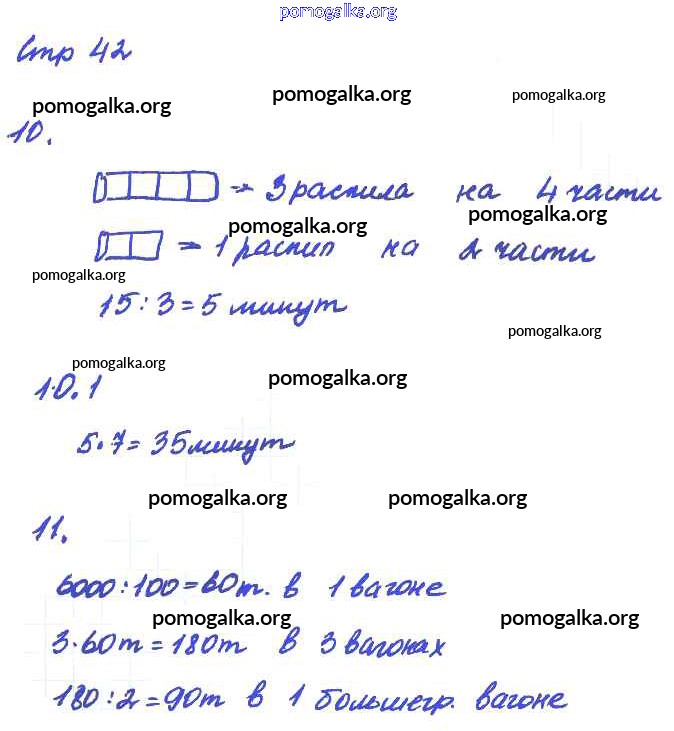 pomogalka.org
Стр 42
pomogalka.org pomogalka.org pomogalka.org
10.
→ 3 распила на 4 части
pomogalka.org pomogalka.org
→ 1 распил на 2 части
pomogalka.org
15 : 3 = 5 минут
pomogalka.org
pomogalka.org pomogalka.org
10.1
5·7 = 35 минут
pomogalka.org pomogalka.org
11.
6000 : 100 = 60 т. в 1 вагоне
pomogalka.org pomogalka.org
3·60 т = 180 т в 3 вагонах
180 : 2 = 90 т в 1 большегр. вагоне